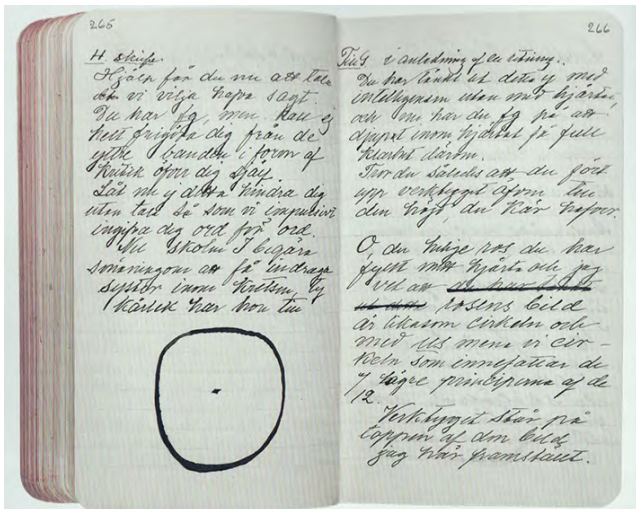 265
H. skrifver
Hjälp får du nu att tala
vi vilja hafva sagt.
Du har fg, men kan ej
helt frigöra dig från de
yttre banden i form af
kritik öfver dig själf.
Låt nu ej detta hindra dig
utan tala så som vi impulsivt
ingifva dig ord för ord.
Nu skolen I begära
att få indraga
syster inom kretsen, ty
Kärlek har hon till
266
i anledning af en ritning.
Du har tänkt ut detta ej med
intelligensen utan med hjärtat
och nu har du fg på att
djupet inom hjärtat få full
klarhet därom.
Tror du således att du fört
upp verktyget äfven till
den höjd du här hafver.
O, du helige ros du har
fyllt mitt hjärta och jag
vet att
rosens bild
är liksom cirkeln och
med us mena vi cir-
keln som innefattar de
7 högre principerna af de
12.
Verktyget står på
toppen af den bild
jag här framställt.